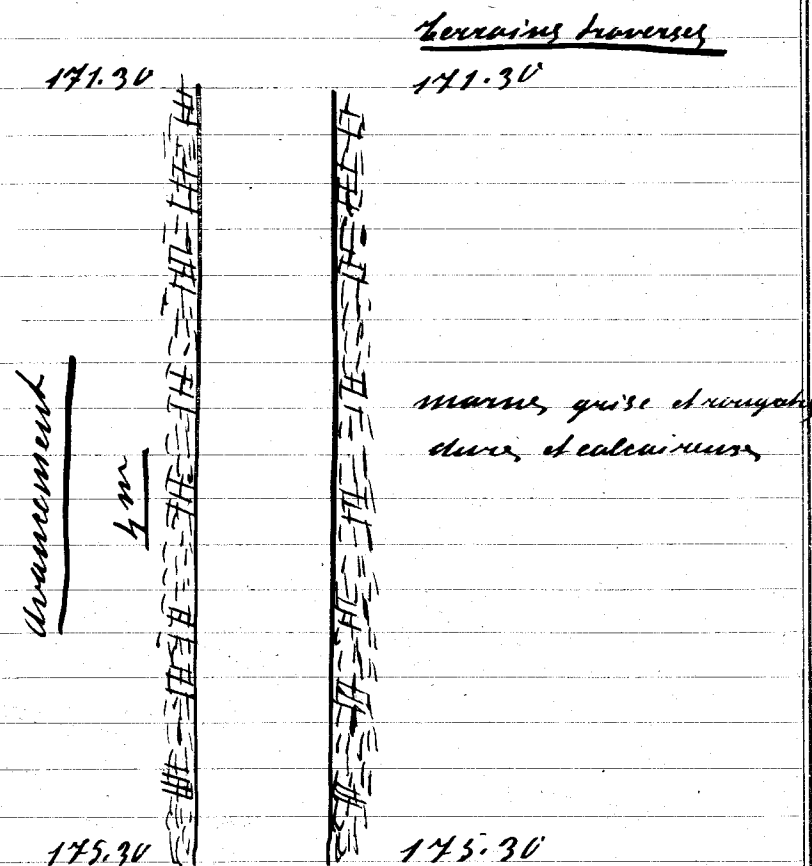 Terrains traversés
171.30
171.30
Avancement
4m
marnes grise et rougeatres
dures et calcaireuses
175.30
175.30